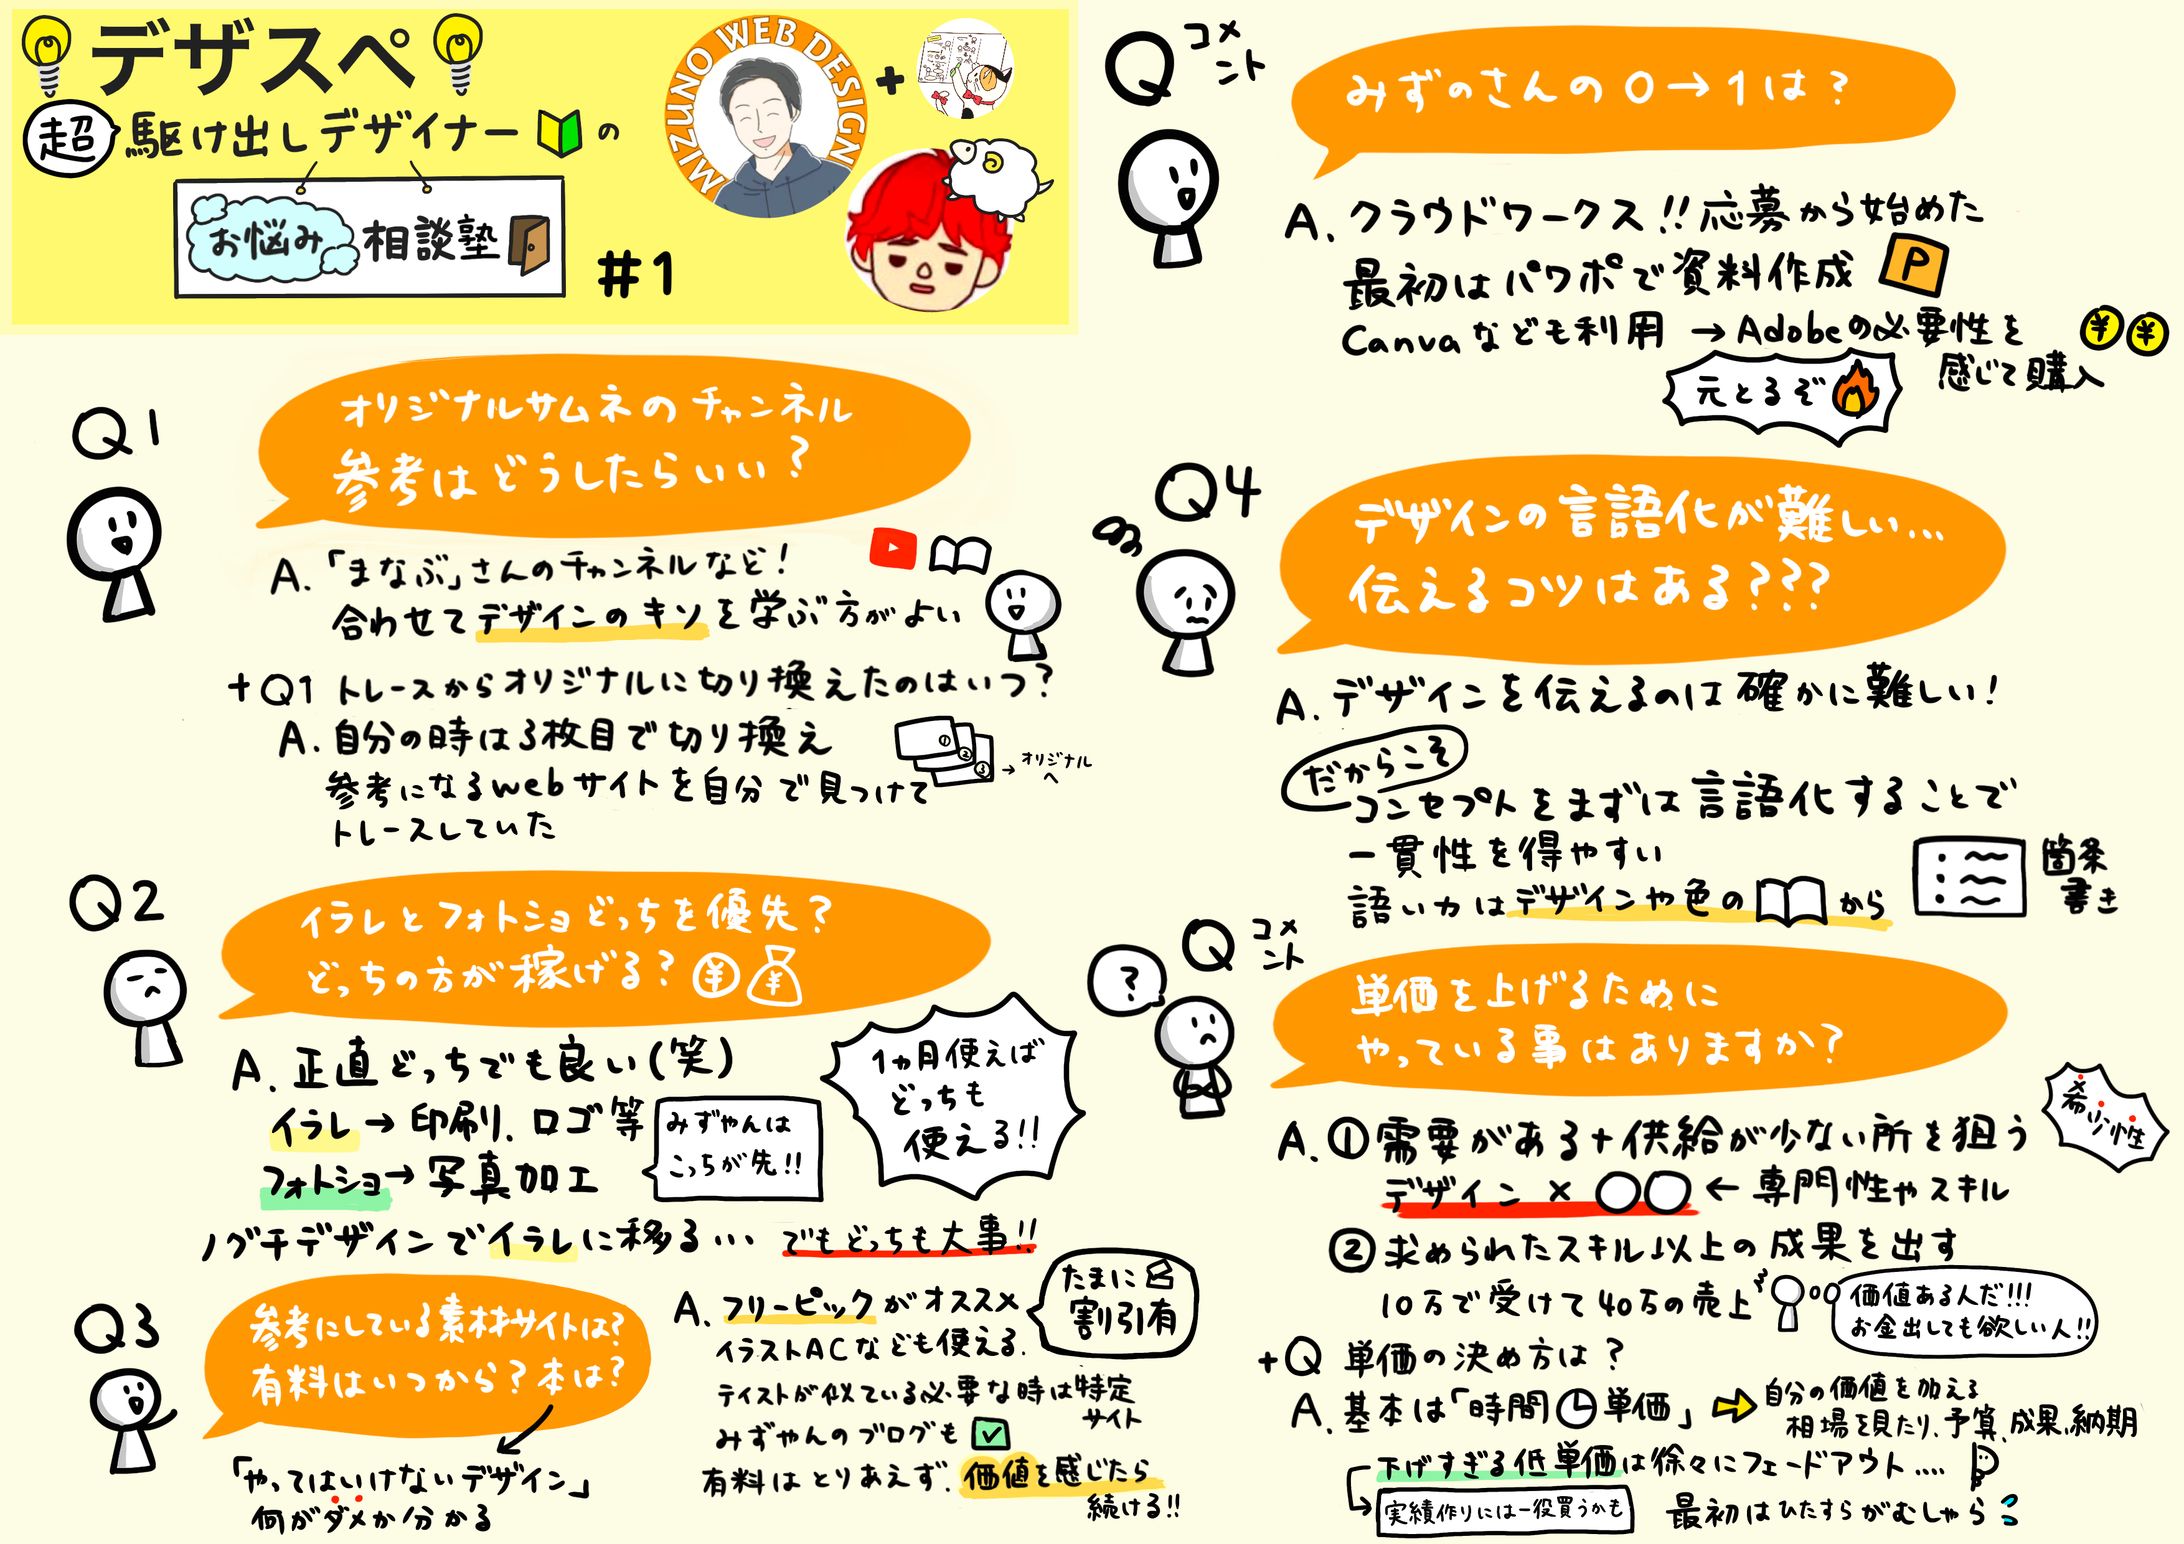 デザスペ
超 駆け出しデザイナー の
お悩み 相談塾
#1
MIZUNO WEB DESIGN
+
Q1
オリジナルサムネのチャンネル
参考はどうしたらいい?
A. 「まなぶ」さんのチャンネルなど!
合わせてデザインのキソを学ぶ方がよい
+Q1 トレースからオリジナルに切り換えたのはいつ?
A. 自分の時は3枚目で切り換え
参考になるwebサイトを自分で見つけて
トレースしていた
① ② ③ → オリジナルへ
Q2
イラレとフォトショどっちを優先?
どっちの方が稼げる? ¥ ¥
A. 正直どっちでも良い(笑)
イラレ→印刷、ロゴ等
フォトショ→写真加工
みずやんは
こっちが先!!
1ヵ月使えば
どっちも
使える!!
ノグチデザインでイラレに移る… でもどっちも大事!!
Q3
参考にしている素材サイトは?
有料はいつから?本は?
「やってはいけないデザイン」
何がダメか分かる
A. フリーピックがオススメ
イラストACなども使える.
たまに
割引有
テイストが似ている必要な時は特定
サイト
みずやんのブログも
有料はとりあえず、価値を感じたら
続ける!!
Q コメント
みずのさんの0→1は?
A. クラウドワークス!!応募から始めた
最初はパワポで資料作成 P
Canvaなども利用 →Adobeの必要性を
感じて購入
¥ ¥
元とるぞ
Q4
デザインの言語化が難しい…
伝えるコツはある???
A. デザインを伝えるのは確かに難しい!
だからこそ
コンセプトをまずは言語化することで
一貫性を得やすい
語い力はデザインや色の から
箇条
書き
Q コメント
?
単価を上げるために
やっている事はありますか?
A. ①需要がある+供給が少ない所を狙う
希少性
デザイン × ○○ ← 専門性やスキル
②求められたスキル以上の成果を出す
10万で受けて40万の売上
価値ある人だ!!!
お金出しても欲しい人!!
+Q 単価の決め方は?
A. 基本は「時間 単価」
自分の価値を加える
相場を見たり、予算、成果、納期
下げすぎる低単価は徐々にフェードアウト….
実績作りには一役買うかも
最初はひたすらがむしゃら